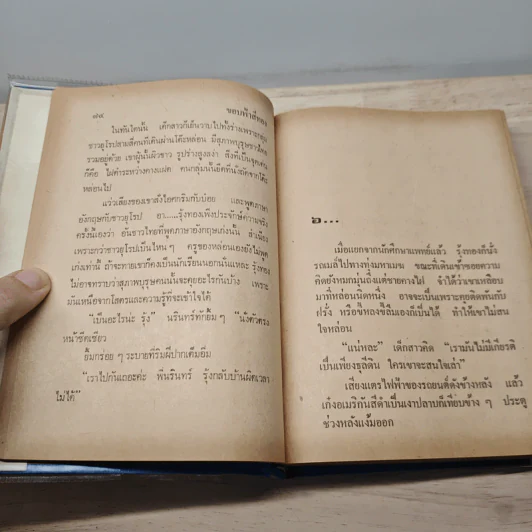 ๗๘ ขอบฟ้าสีทอง
ในทันใดนั้น เด็กสาวก็เย็นวาบไปทั้งร่างเพราะกลุ่ม
ชาวยุโรปสามสี่คนที่เดินผ่านโต๊ะหล่อน มีสุภาพบุรุษชาวไทย
รวมอยู่ด้วย เขาผู้นั้นผิวขาว รูปร่างสูงสง่า สิ่งที่เป็นจุดเด่น
ก็คือ ไฝดำระหว่างคางแฝด คนกลุ่มนั้นยึดที่นั่งถัดจากโต๊ะ
หล่อนไป
แว่วเสียงของเขาสั่งไอศกรีมกับบ๋อย และพูดภาษา
อังกฤษกับชาวยุโรป อา.....รุ้งทองเพิ่งประจักษ์ความจริง
ครั้งนี้เองว่า อันชาวไทยที่พูดภาษาอังกฤษเก่งนั้น สำเนียง
เพราะกว่าชาวยุโรปเป็นไหน ๆ ครูของหล่อนเองยังไม่พูด
เก่งเท่านี้ ถ้าจะทายเขาก็คงเป็นนักเรียนนอกนั่นแหละ รุ้งทอง
ไม่อาจทราบว่าสุภาพบุรุษคนนั้นจะคุยอะไรกันบ้าง เพราะ
มันเหนือจากโสตรและความรู้ที่จะเข้าใจได้
“เป็นอะไรน่ะ รุ้ง” นรินทร์ทักยิ้ม ๆ “นั่งตัวตรง
หน้าซีดเชียว
ยิ้มกร่อย ๆ ระบายที่ริมฝีปากเต็มอิ่ม
“เราไปกันเถอะค่ะ พี่นรินทร์ รุ้งกลับบ้านผิดเวลา
ไม่ได้”
๖...
เมื่อแยกจากนักศึกษาแพทย์แล้ว รุ้งทองก็นั่ง
รถเมล์ไปทางทุ่งมหาเมฆ ขณะที่เดินเข้าซอยความ
คิดยังหมกมุ่นถึงแต่ชายคางไฝ จำได้ว่าเขาเหลือบ
มาที่หล่อนนิดหนึ่ง อาจจะเป็นเพราะคุยติดพันกับ
ฝรั่ง หรือขี้หลงขี้ลืมเองก็เป็นได้ ทำให้เขาไม่สน
ใจหล่อน
“แน่หละ” เด็กสาวคิด “เรามันไม่มีเกียรติ
เป็นเพียงธุลีดิน ใครเขาจะสนใจเล่า”
เสียงแตรไฟฟ้าของรถยนต์ดังข้างหลัง แล้ว
เก๋งอเมริกันสีดำเป็นเงาปลาบก็เทียบข้าง ๆ ประตู
ช่วงหลังแง้มออก